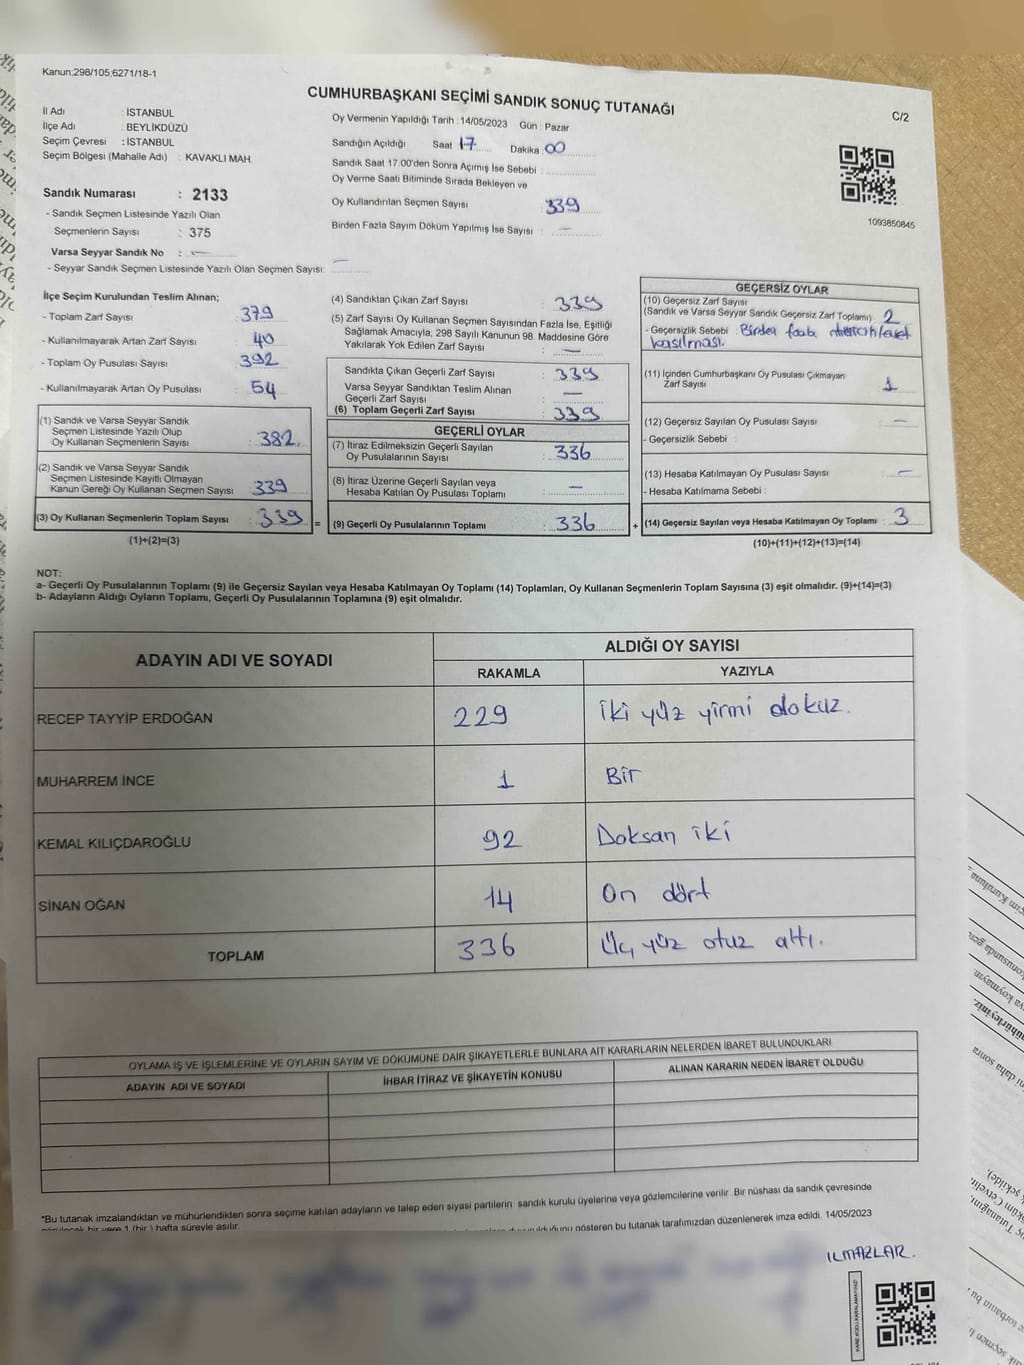 Kanun;298/105,6271/18-1
CUMHURBAŞKANI SEÇİMİ SANDIK SONUÇ TUTANAĞI
C/2
İl Adı : İSTANBUL
İlçe Adı : BEYLİKDÜZÜ
Seçim Çevresi : İSTANBUL
Seçim Bölgesi (Mahalle Adı) : KAVAKLI MAH.
Sandık Numarası : 2133
- Sandık Seçmen Listesinde Yazılı Olan
Seçmenlerin Sayısı : 375
Varsa Seyyar Sandık No : —
- Seyyar Sandık Seçmen Listesinde Yazılı Olan Seçmen Sayısı: —
Oy Vermenin Yapıldığı Tarih : 14/05/2023 Gün : Pazar
Sandığın Açıldığı Saat 17 Dakika 00
Sandık Saat 17.00'den Sonra Açımış İse Sebebi :
Oy Verme Saati Bitiminde Sırada Bekleyen ve
Oy Kullandırılan Seçmen Sayısı : 339
Birden Fazla Sayım Döküm Yapılmış İse Sayısı : —
1093850845
İlçe Seçim Kurulundan Teslim Alınan;
- Toplam Zarf Sayısı : 379
- Kullanılmayarak Artan Zarf Sayısı : 40
- Toplam Oy Pusulası Sayısı : 392
- Kullanılmayarak Artan Oy Pusulası : 54
(1) Sandık ve Varsa Seyyar Sandık
Seçmen Listesinde Yazılı Olup
Oy Kullanan Seçmenlerin Sayısı : 382
(2) Sandık ve Varsa Seyyar Sandık
Seçmen Listesinde Kayıtlı Olmayan
Kanun Gereği Oy Kullanan Seçmen Sayısı : 339
(3) Oy Kullanan Seçmenlerin Toplam Sayısı : 339 =
(1)+(2)=(3)
(4) Sandıktan Çıkan Zarf Sayısı : 339
(5) Zarf Sayısı Oy Kullanan Seçmen Sayısından Fazla İse, Eşitliği
Sağlamak Amacıyla; 298 Sayılı Kanunun 98. Maddesine Göre
Yakılarak Yok Edilen Zarf Sayısı : —
Sandıkta Çıkan Geçerli Zarf Sayısı : 339
Varsa Seyyar Sandıktan Teslim Alınan
Geçerli Zarf Sayısı : —
(6) Toplam Geçerli Zarf Sayısı : 339
GEÇERLİ OYLAR
(7) İtiraz Edilmeksizin Geçerli Sayılan
Oy Pusulalarının Sayısı : 336
(8) İtiraz Üzerine Geçerli Sayılan veya
Hesaba Katılan Oy Pusulası Toplamı : —
(9) Geçerli Oy Pusulalarının Toplamı : 336 +
GEÇERSİZ OYLAR
(10) Geçersiz Zarf Sayısı
(Sandık ve Varsa Seyyar Sandık Geçersiz Zarf Toplamı) : 2
- Geçersizlik Sebebi : Birden fazla
basılması.
(11) İçinden Cumhurbaşkanı Oy Pusulası Çıkmayan
Zarf Sayısı : 1
(12) Geçersiz Sayılan Oy Pusulası Sayısı : —
- Geçersizlik Sebebi :
(13) Hesaba Katılmayan Oy Pusulası Sayısı : —
- Hesaba Katılmama Sebebi :
(14) Geçersiz Sayılan veya Hesaba Katılmayan Oy Toplamı : 3
(10)+(11)+(12)+(13)=(14)
NOT:
a- Geçerli Oy Pusulalarının Toplamı (9) ile Geçersiz Sayılan veya Hesaba Katılmayan Oy Toplamı (14) Toplamları, Oy Kullanan Seçmenlerin Toplam Sayısına (3) eşit olmalıdır. (9)+(14)=(3)
b- Adayların Aldığı Oyların Toplamı, Geçerli Oy Pusulalarının Toplamına (9) eşit olmalıdır.
ADAYIN ADI VE SOYADI
ALDIĞI OY SAYISI
RAKAMLA YAZIYLA
RECEP TAYYİP ERDOĞAN 229 iki yüz yirmi dokuz.
MUHARREM İNCE 1 Bir
KEMAL KILIÇDAROĞLU 92 Doksan iki
SİNAN OĞAN 14 On dört
TOPLAM 336 Üç yüz otuz altı.
OYLAMA İŞ VE İŞLEMLERİNE VE OYLARIN SAYIM VE DÖKÜMÜNE DAİR ŞİKAYETLERLE BUNLARA AİT KARARLARIN NELERDEN İBARET BULUNDUKLARI
ADAYIN ADI VE SOYADI İHBAR İTİRAZ VE ŞİKAYETİN KONUSU ALINAN KARARIN NEDEN İBARET OLDUĞU
*Bu tutanak imzalandıktan ve mühürlendikten sonra seçime katılan adayların ve talep eden siyasi partilerin sandık kurulu üyelerine veya gözlemcilerine verilir .Bir nüshası da sandık çevresinde
görülecek bir yere 1 (bir ) hafta süreyle asılır.
gösteren bu tutanak tarafımızdan düzenlenerek imza edildi. 14/05/2023